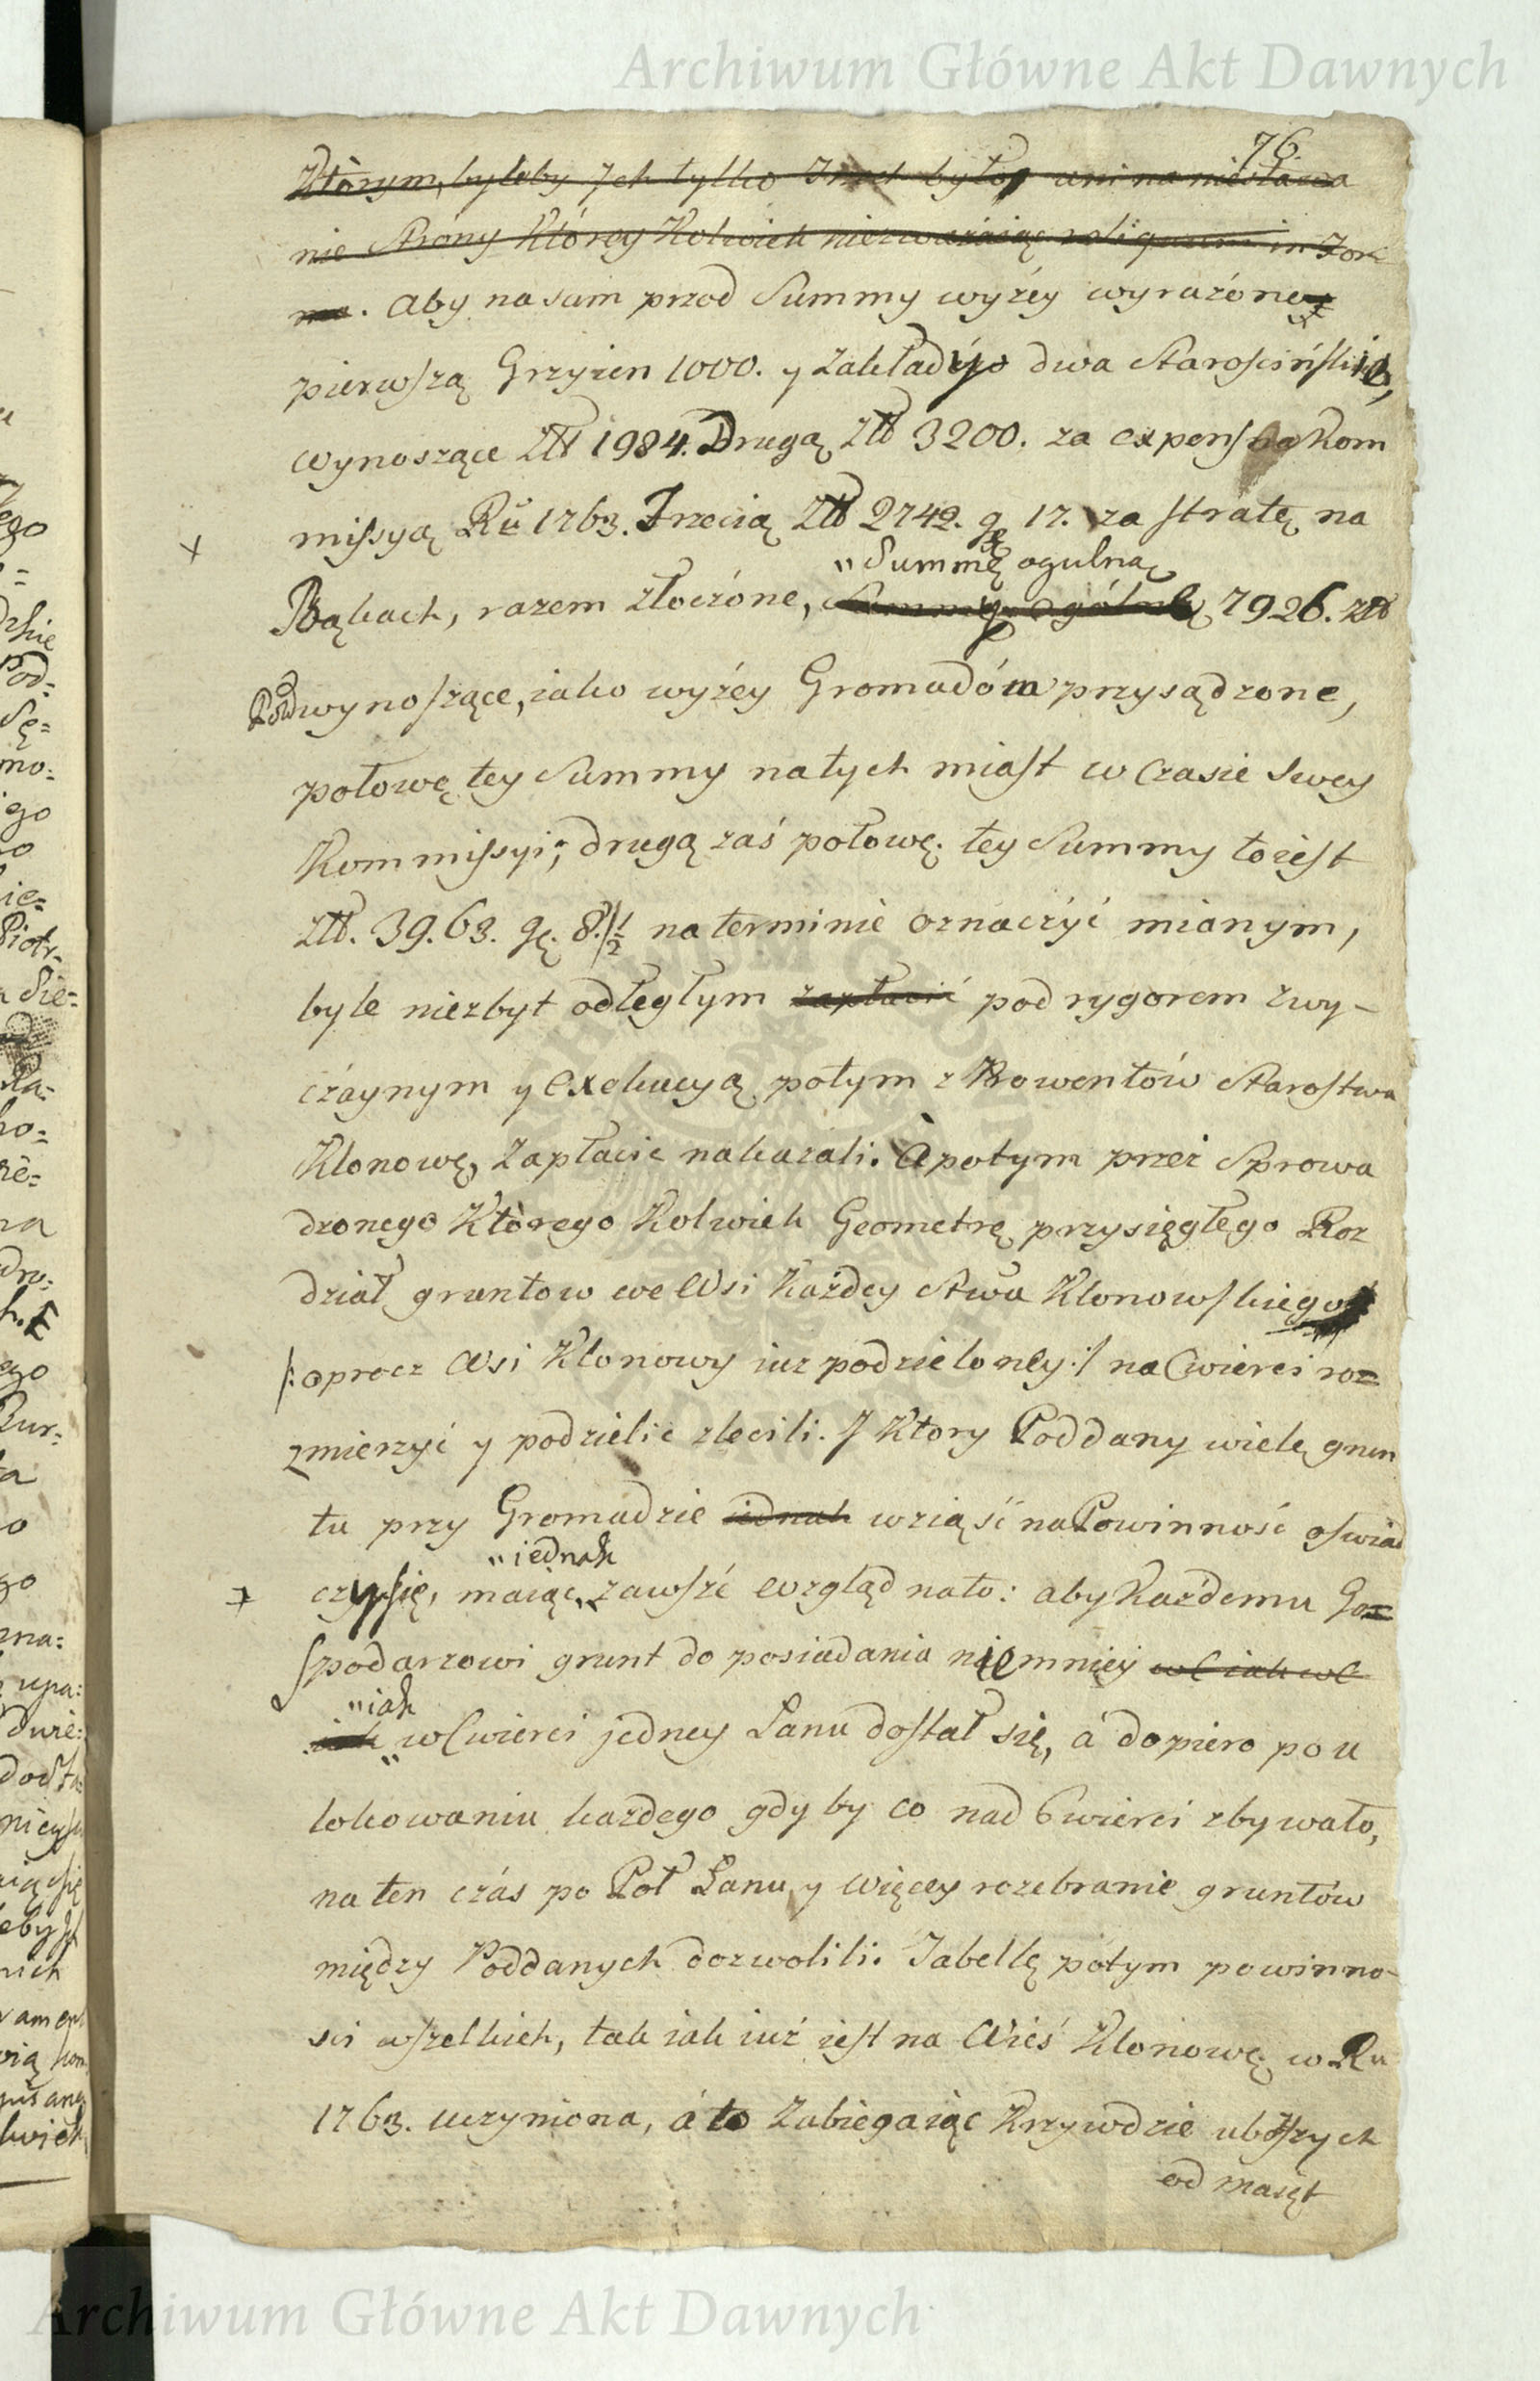 Archiwum Główne Akt Dawnych
76.
Którym, byleby Ich tylko Trzech było, ani na niestawa
nie Strony Którey Kolwiek niezważaiąc reliquum in For
ma. Aby na sam przod Summy wyżey wyrażone
pierwszą Grzywien 1000. y Zakłady dwa Starościńskie,
wynoszące Złł 1984. Drugą Złł 3200. za expensa Kom
missyą Rũ 1763. Trzecią Złł 2742. g 17. za stratę na
"Summę ogulną
Bąkach, razem złoczóne, Summę ogólną 7926. złł
Pol wynoszące, iako wyżey Gromadóm przysądzone,
połowę tey Summy natych miast w Czasie Swey
Kommissyi; drugą zaś połowę tey Summy toiest
złł. 39.63. gę. 8. 1/2 na terminie oznaczyć mianym,
byle niezbyt odległym zapłacić pod rygorem zwy-
czaynym y exekucyą potym z Prowentów Starostwa
Klonowę, Zapłacić nakazali. A potym przez Sprowa
dzonego Którego Kolwiek Geometrę przysięgłego Roz
dział gruntow we Wsi Każdey Stwa Klonowskiego
/: oprocz Wsi Klonowy iuz podzieloney :/ na Cwierci roz=
zmierzyć y podzielic zlecili. J Ktory Poddany wielę grun
tu przy Gromadzie iednak wziąść na Powinność oświad
"iednak
czy się, maiąc zawsze wzgląd nato: aby Każdemu Go=
spodarzowi grunt do posiadania niemniey w C iak w C
"iak
iak w Cwierci jedney Łanu dostał się, á dopiero po u
lokowaniu każdego gdy by co nad Cwierci zbywało,
na ten czás po Poł Łanu y więcey rozebranie gruntów
między Poddanych dozwolili. Tabellę potym powinno-
sci wszelkich, tak iak iuż iest na Wieś Klonowę w Ru
1763. uczyniona, á to Zabiegaiąc Krzywdzie uboższych
od maięt
Archiwum Główne Akt Dawnych